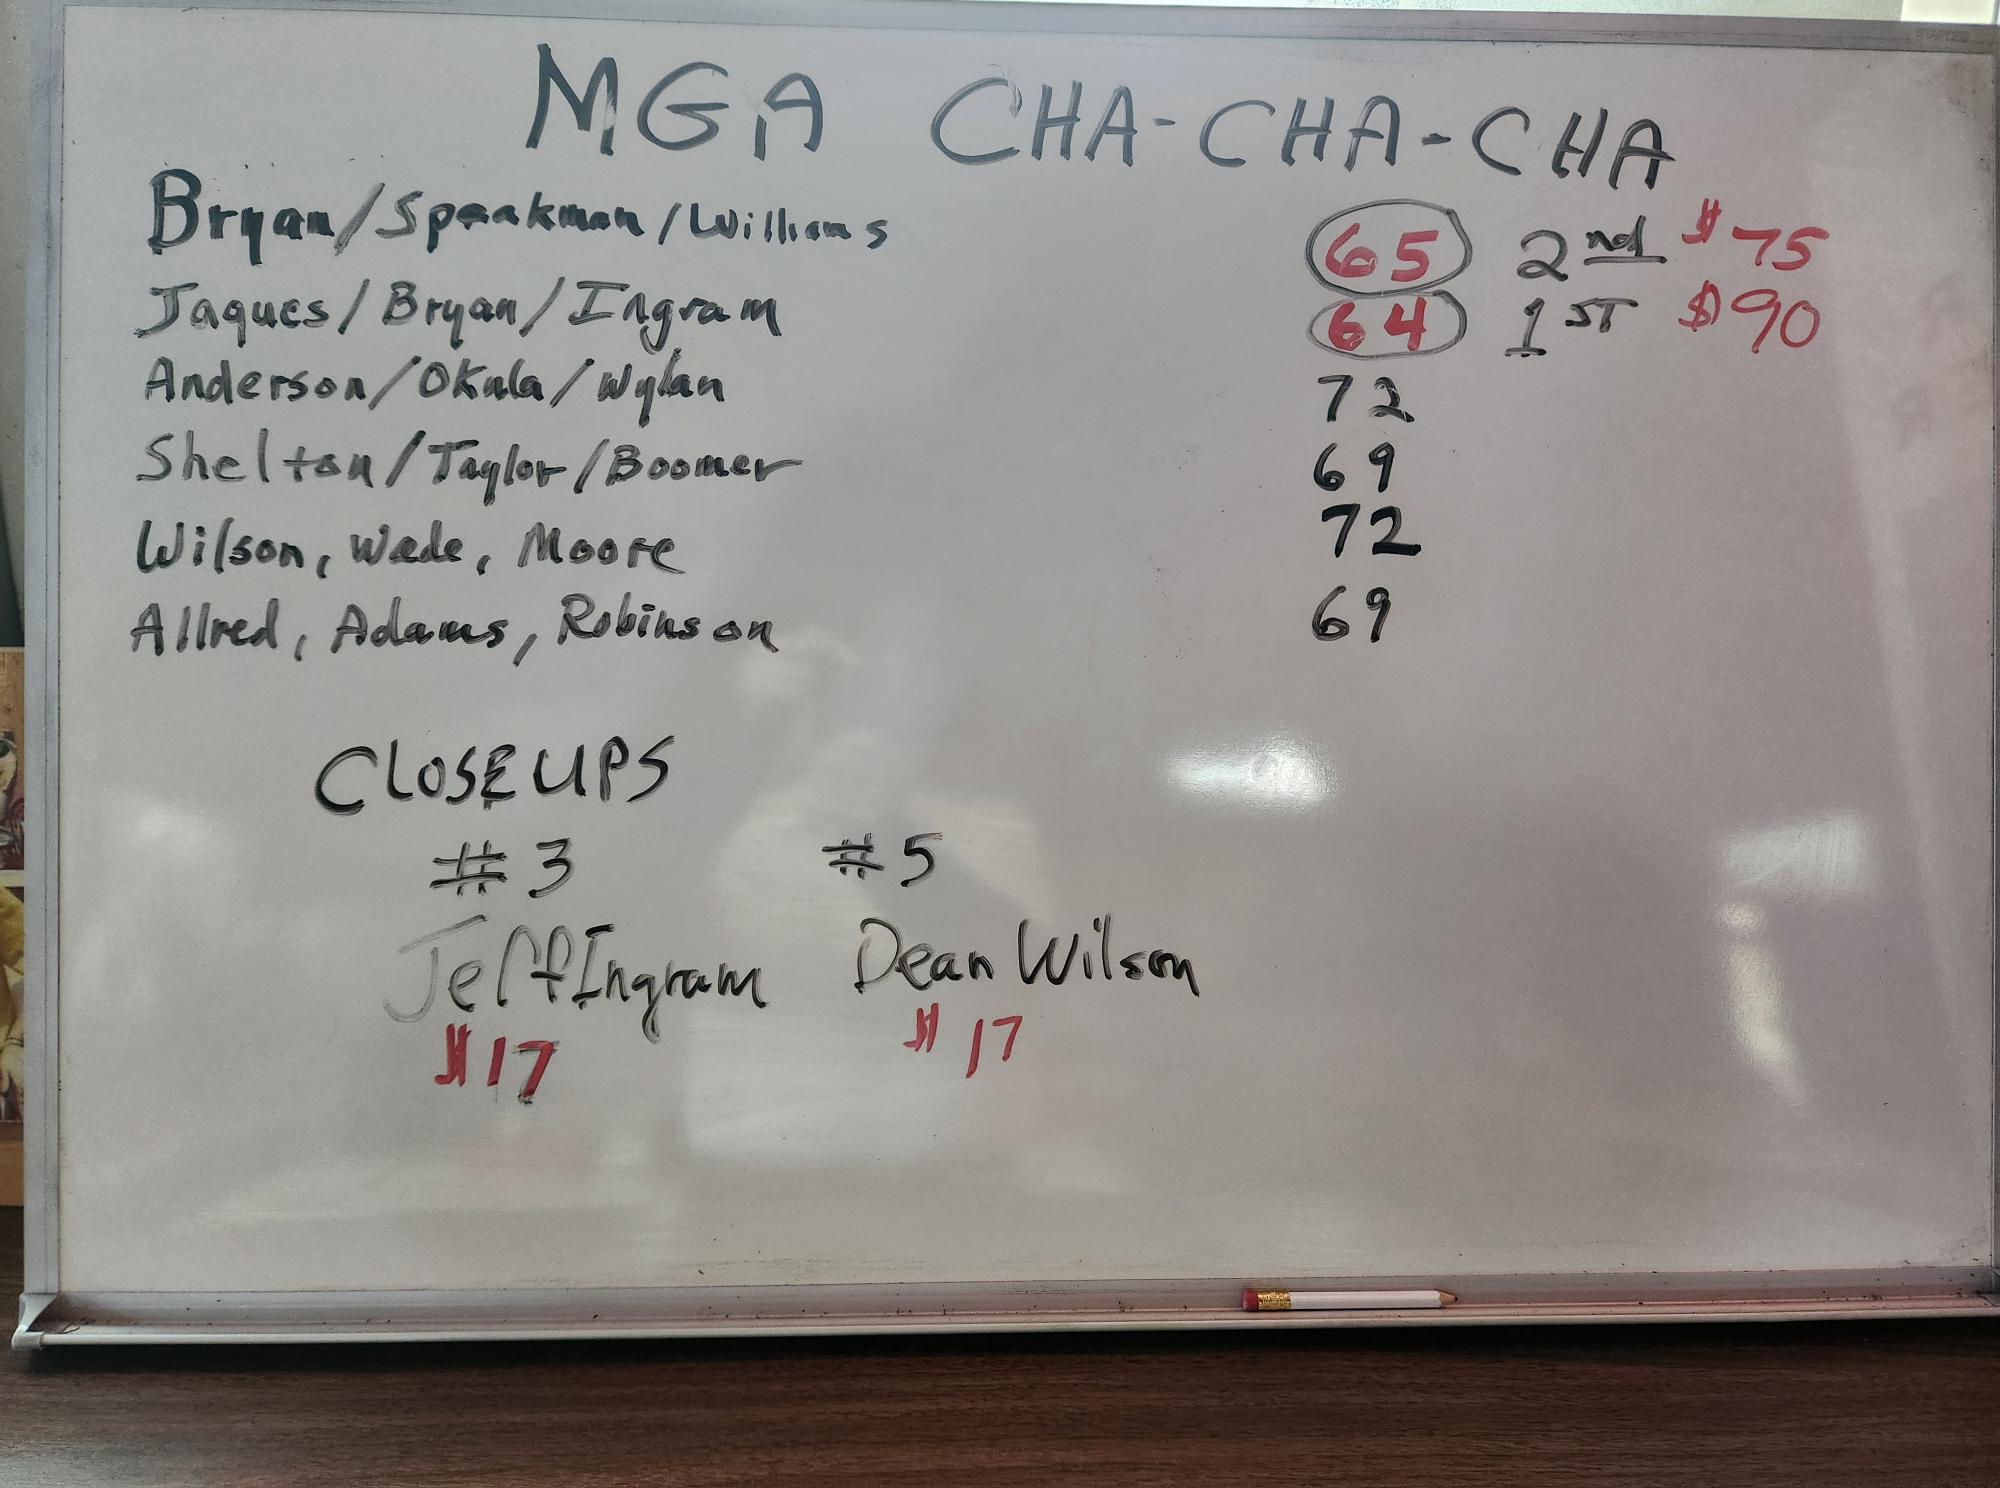 MGA CHA-CHA-CHA
Bryan/Speakman/Williams 65 2nd $75
Jaques/Bryan/Ingram 64 1ST $90
Anderson/Okula/Wylan 72
Shelton/Taylor/Boomer 69
Wilson, Wade, Moore 72
Allred, Adams, Robinson 69
CLOSEUPS
#3 #5
Jeff Ingram Dean Wilson
$17 $17
STAPLES